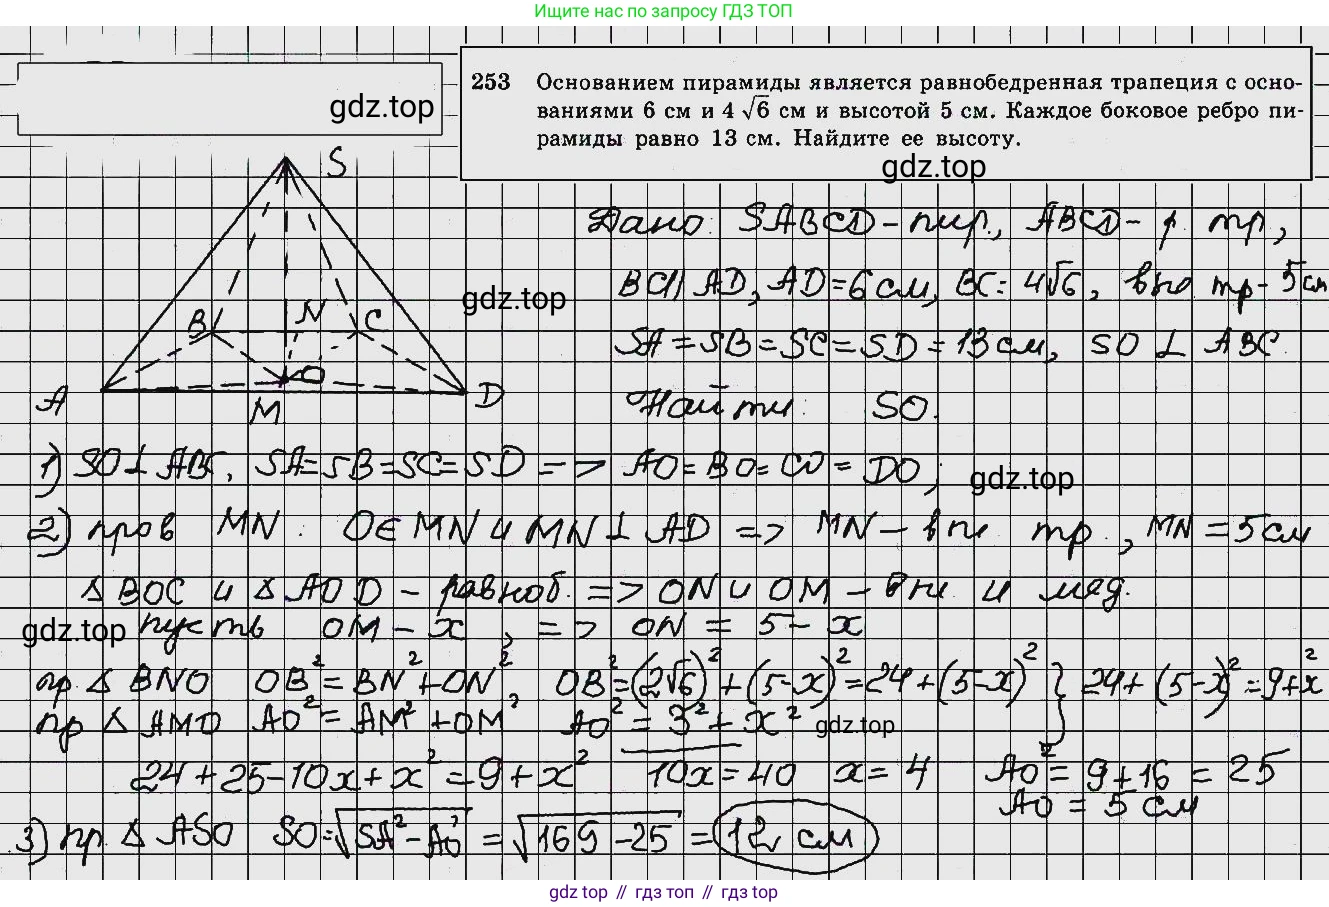 Ищите нас по запросу ГДЗ ТОП
gdz.top
253 Основанием пирамиды является равнобедренная трапеция с осно-
ваниями 6 см и 4 √6 см и высотой 5 см. Каждое боковое ребро пи-
рамиды равно 13 см. Найдите ее высоту.
gdz.top
S
Дано: SABCD – пир., ABCD – р. тр,
gdz.top
BC || AD, AD = 6 см, BC = 4√6, выс. тр – 5 см
B N C
SA = SB = SC = SD = 13 см, SO ⊥ ABC
A M O D
Найти: SO.
1) SO ⊥ ABC, SA = SB = SC = SD => AO = BO = CO = DO;
gdz.top
2) пров MN: O ∈ MN и MN ⊥ AD => MN – выс тр., MN = 5 см
△ BOC и △ AOD – равноб. => ON и OM – выс и мед.
gdz.top
пусть OM – x, => ON = 5 – x
пр △ BNO OB² = BN² + ON², OB² = (2√6)² + (5-x)² = 24 + (5-x)² } 24 + (5-x)² = 9 + x²
пр △ AMO AO² = AM² + OM² AO² = 3² + x²
gdz.top
24 + 25 - 10x + x² = 9 + x² 10x = 40 x = 4 AO² = 9 + 16 = 25
AO = 5 см
3) пр. △ ASO SO = √SA² - AO² = √169 - 25 = 12 см
gdz top // гдз топ // gdz top